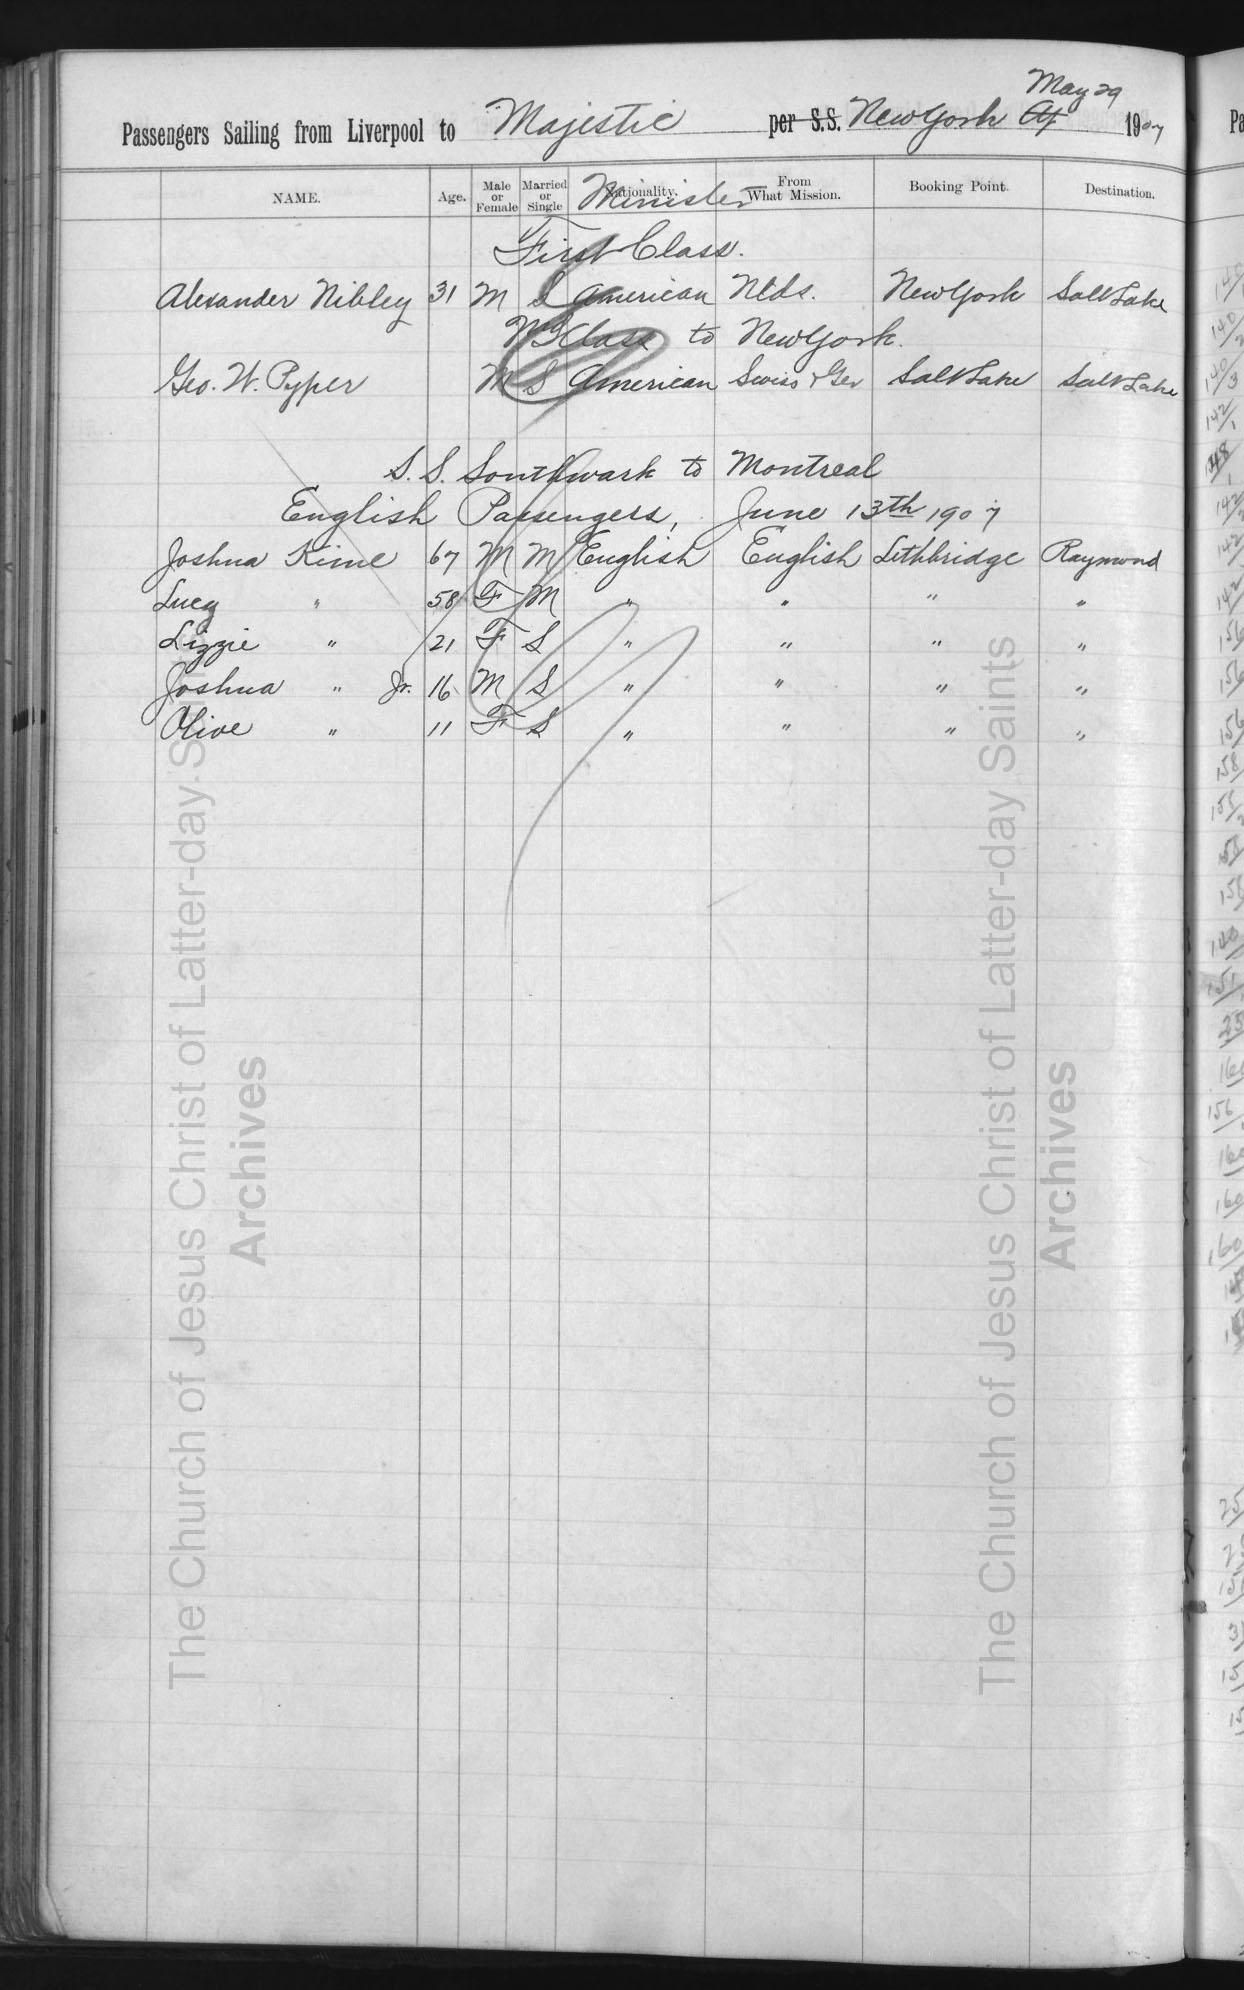 May 29
Passengers Sailing from Liverpool to Majestic per S.S. New York 1907
NAME. Age. Male or Female Married or Single Nationality. From What Mission. Booking Point. Destination.
Minister
First Class.
Alexander Nibley 31 M S American Nlds. New York Salt Lake
Class to New York.
Geo. W. Pyper M S American Swiss & Ger Salt Lake Salt Lake
S.S. Southwark to Montreal
English Passengers, June 13th 1907
Joshua Kime 67 M M English English Lethbridge Raymond
Lucy " 58 F M " " " "
Lizzie " 21 F S " " " "
Joshua " Jr. 16 M S " " " "
Olive " 11 F S " " " "
The Church of Jesus Christ of Latter-day Saints
Archives
The Church of Jesus Christ of Latter-day Saints
Archives